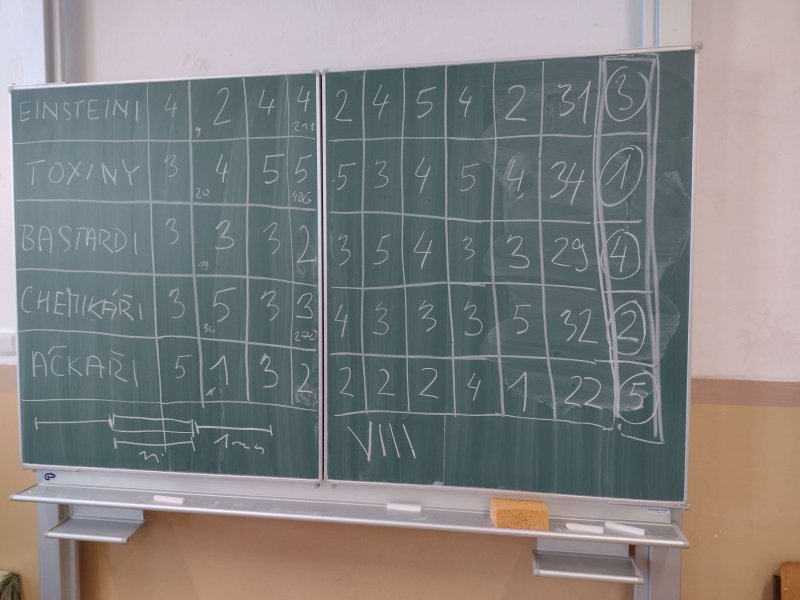 EINSTEINI 4 9 2 4 4 218 2 4 5 4 2 31 3
TOXINY 3 20 4 5 5 406 5 3 4 5 4 34 1
BASTARDI 3 19 3 3 2 3 5 4 3 3 29 4
CHEMIKÁŘI 3 36 5 3 3 270 4 3 3 3 5 32 2
AČKAŘI 5 1 3 2 2 2 2 4 1 22 5
VIIII